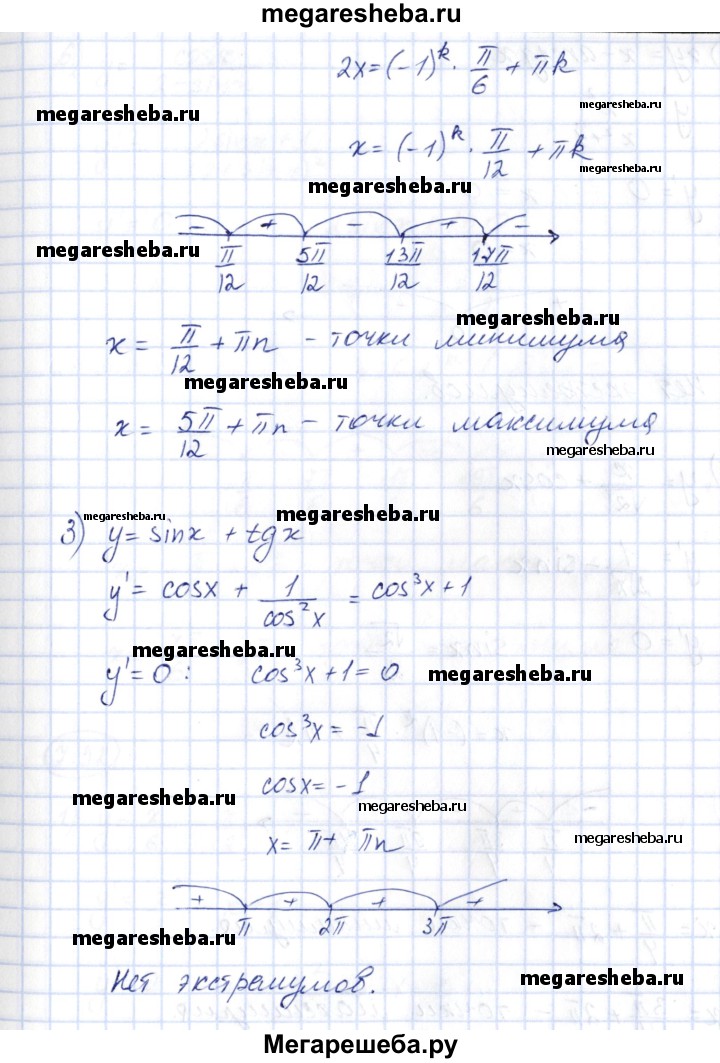 megaresheba.ru
2x = (-1)^k · π/6 + πk
megaresheba.ru megaresheba.ru
x = (-1)^k · π/12 + πk
megaresheba.ru
megaresheba.ru
- + - + -
megaresheba.ru
π/12 5π/12 13π/12 17π/12
megaresheba.ru
x = π/12 + πn - точки минимума
megaresheba.ru
x = 5π/12 + πn - точки максимума
megaresheba.ru
megaresheba.ru megaresheba.ru
3) y = sinx + tgx
y' = cosx + 1/cos²x = cos³x + 1
megaresheba.ru
y' = 0: cos³x + 1 = 0
megaresheba.ru
cos³x = -1
cosx = -1
megaresheba.ru megaresheba.ru
x = π + πn
megaresheba.ru
+ + + +
π 2π 3π
megaresheba.ru
Нет экстремумов.
megaresheba.ru
Мегарешеба.ру